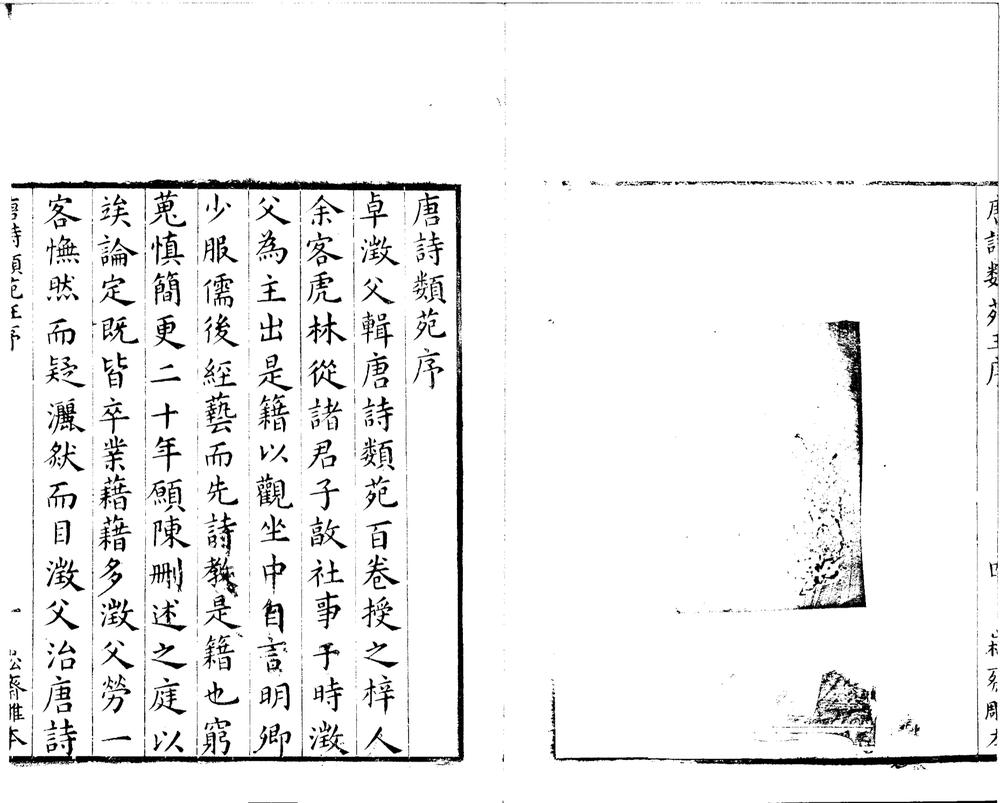 唐詩類苑序
卓澂父輯唐詩類苑百卷授之梓人
余客虎林從諸君子敦社事于時澂
父為主出是籍以觀坐中自言明卿
少服儒後經藝而先詩教是籍也窮
蒐慎簡更二十年願陳刪述之庭以
竢論定既皆卒業藉藉多澂父勞一
客憮然而疑灑然而目澂父治唐詩
唐詩類苑王序
一
崧齋雕本